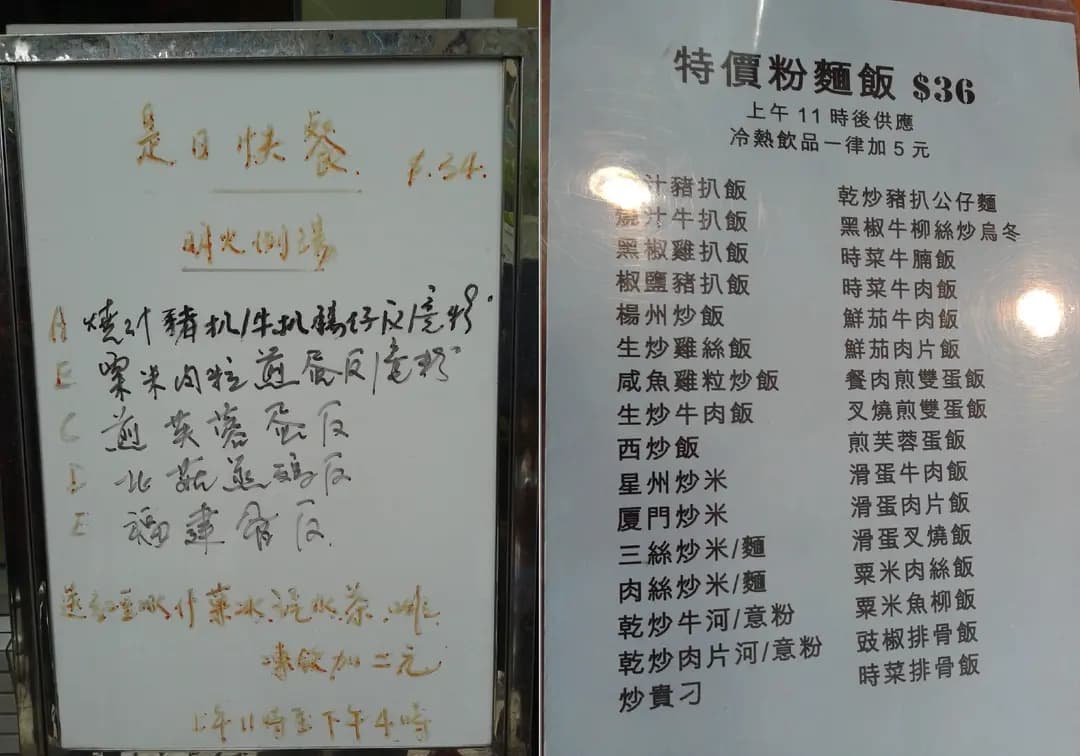 是日快餐.
$.34.
明火例湯
A 燒汁豬扒/牛扒腸仔反/意粉
B 粟米肉粒煎蛋反/意粉
C 煎芙蓉蛋反
D 北菇蒸鸡反
E 福建骨反.
送紅豆冰什菓冰.汽水茶.啡.
凍飲加二元
上午11時至下午4時
特價粉麵飯 $36
上午 11 時後供應
冷熱飲品一律加 5 元
汁豬扒飯
燒汁牛扒飯
黑椒雞扒飯
椒鹽豬扒飯
楊州炒飯
生炒雞絲飯
咸魚雞粒炒飯
生炒牛肉飯
西炒飯
星州炒米
厦門炒米
三絲炒米/麵
肉絲炒米/麵
乾炒牛河/意粉
乾炒肉片河/意粉
炒貴刁
乾炒豬扒公仔麵
黑椒牛柳絲炒烏冬
時菜牛腩飯
時菜牛肉飯
鮮茄牛肉飯
鮮茄肉片飯
餐肉煎雙蛋飯
叉燒煎雙蛋飯
煎芙蓉蛋飯
滑蛋牛肉飯
滑蛋肉片飯
滑蛋叉燒飯
粟米肉絲飯
粟米魚柳飯
豉椒排骨飯
時菜排骨飯